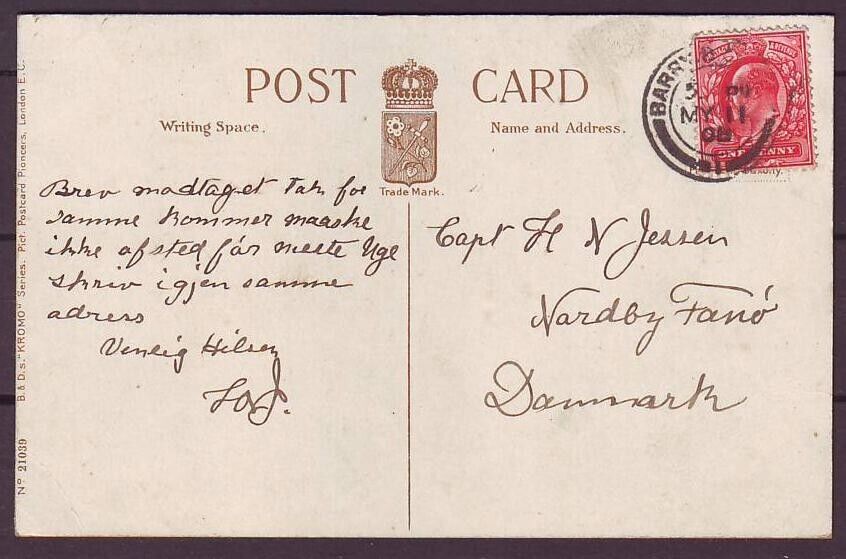 POST CARD
Writing Space.
Name and Address.
Trade Mark.
BARRY
PM
MY 11
ONE PENNY
Saxony.
Brev modtaget Tak for
samme kommer maaske
ikke afsted før næste Uge
skriv igjen samme
adress
Venlig Hilsen
Capt H N Jessen
Nordby Fanö
Danmark
B. & D.s. "KROMO" Series. Pict. Postcard Pioneers, London E.C.
No 21039